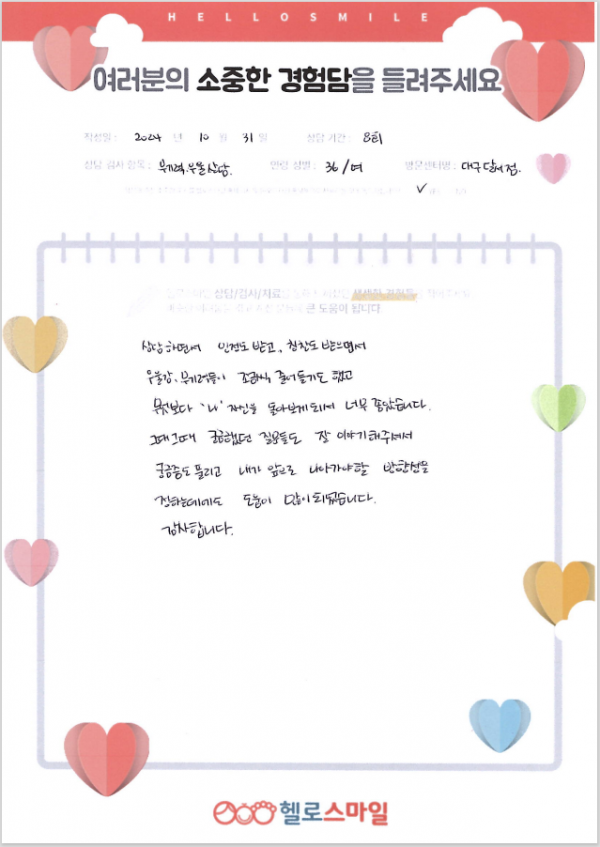 HELLOSMILE
여러분의 소중한 경험담을 들려주세요
작성일 : 2024 년 10 월 31 일 상담 기간 : 8회
상담 검사 항목 : 무기력. 우울 상담. 연령 성별 : 36/여 방문센터명 : 대구 달서점.
상담/검사/치료
큰 도움이 됩니다
상담하면서 인정도 받고, 칭찬도 받으면서
우울감, 무기력들이 조금씩 줄어들기도 했고
무엇보다 '나' 자신을 돌아보게 되서 너무 좋았습니다.
그때그때 궁금했던 질문들도 잘 이야기해주셔서
궁금증도 풀리고 내가 앞으로 나아가야할 방향성을
정하는데에도 도움이 많이 되었습니다.
감사합니다.
헬로스마일